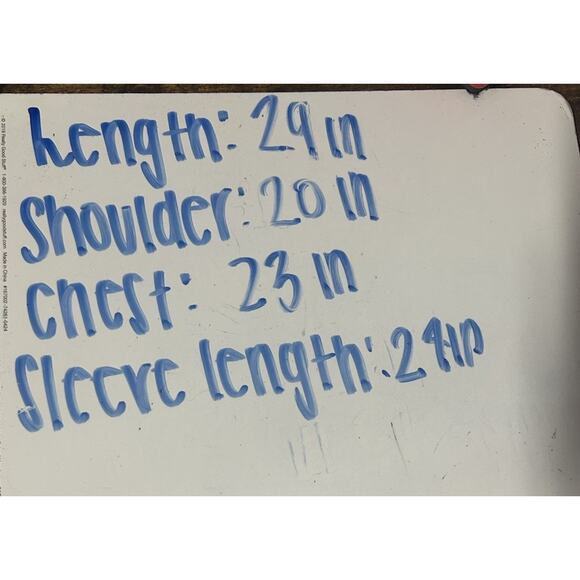 Length: 29 in
Shoulder: 20 in
Chest: 23 in
Sleeve length: 24 in
© 2019 Really Good Stuff® 1-800-366-1920 reallygoodstuff.com Made in China